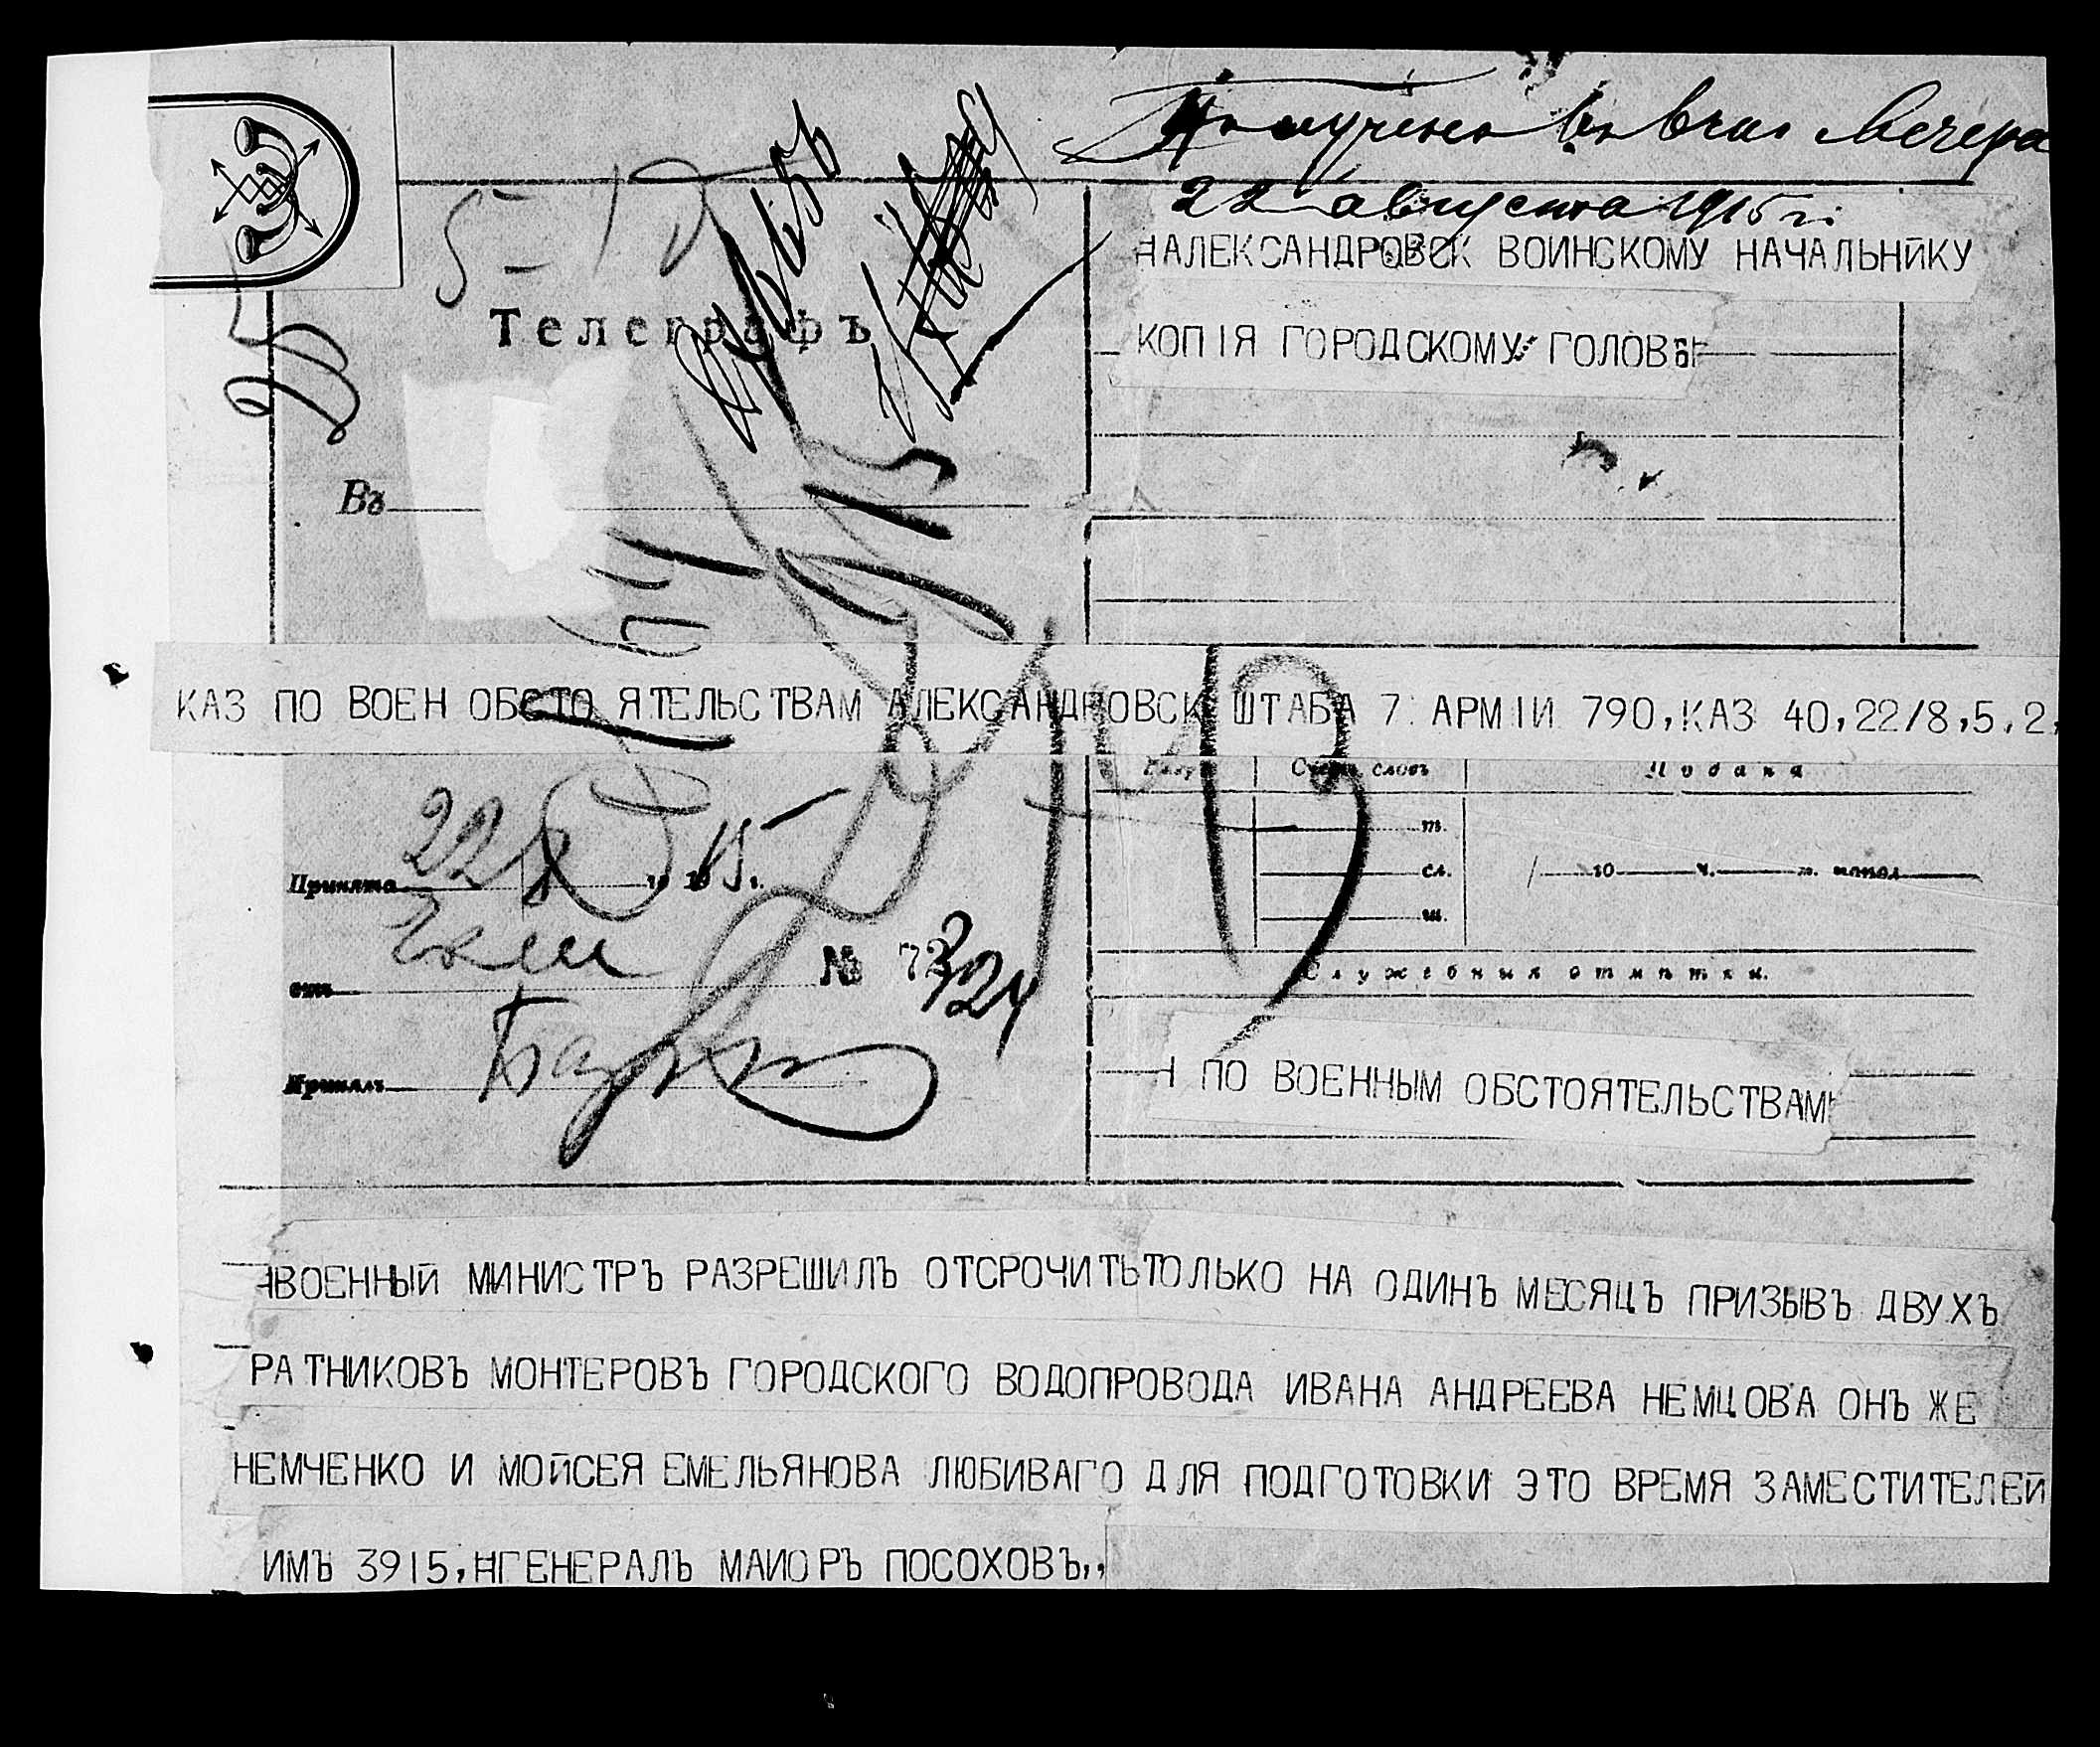 Получено въ 6 час вечера
22 августа 1915 г.
5-10
Телеграфъ
НАЛЕКСАНДРОВСК ВОИНСКОМУ НАЧАЛЬНЙКУ
КОПІЯ ГОРОДСКОМУ ГОЛОВѢН
Въ
КАЗ ПО ВОЕН ОБСТО ЯТЕЛЬСТВАМ АЛЕКСАНДРОВСК ШТАБА 7 АРМІИ 790,КАЗ 40,22/8,5,2,
Счетъ словъ
Подана
т.
сл.
ш.
Принята 22/8 го 1915 г.
го ч. м. попол
изъ Екат
№ 7
324
Служебныя отмѣтки.
Принялъ
Н ПО ВОЕННЫМ ОБСТОЯТЕЛЬСТВАМН
НВОЕННЫЙ МИНИСТРЪ РАЗРЕШИЛЪ ОТСРОЧИТЬТОЛЬКО НА ОДИНЪ МЕСЯЦЪ ПРИЗЫВЪ ДВУХЪ
РАТНИКОВЪ МОНТЕРОВЪ ГОРОДСКОГО ВОДОПРОВОДА ИВАНА АНДРЕЕВА НЕМЦОВА ОНЪ ЖЕ
НЕМЧЕНКО И МОЙСЕЯ ЕМЕЛЬЯНОВА ЛЮБИВАГО ДЛЯ ПОДГОТОВКИ ЭТО ВРЕМЯ ЗАМЕСТИТЕЛЕЙ
ИМЪ 3915,НГЕНЕРАЛЪ МАИОРЪ ПОСОХОВЪ,,